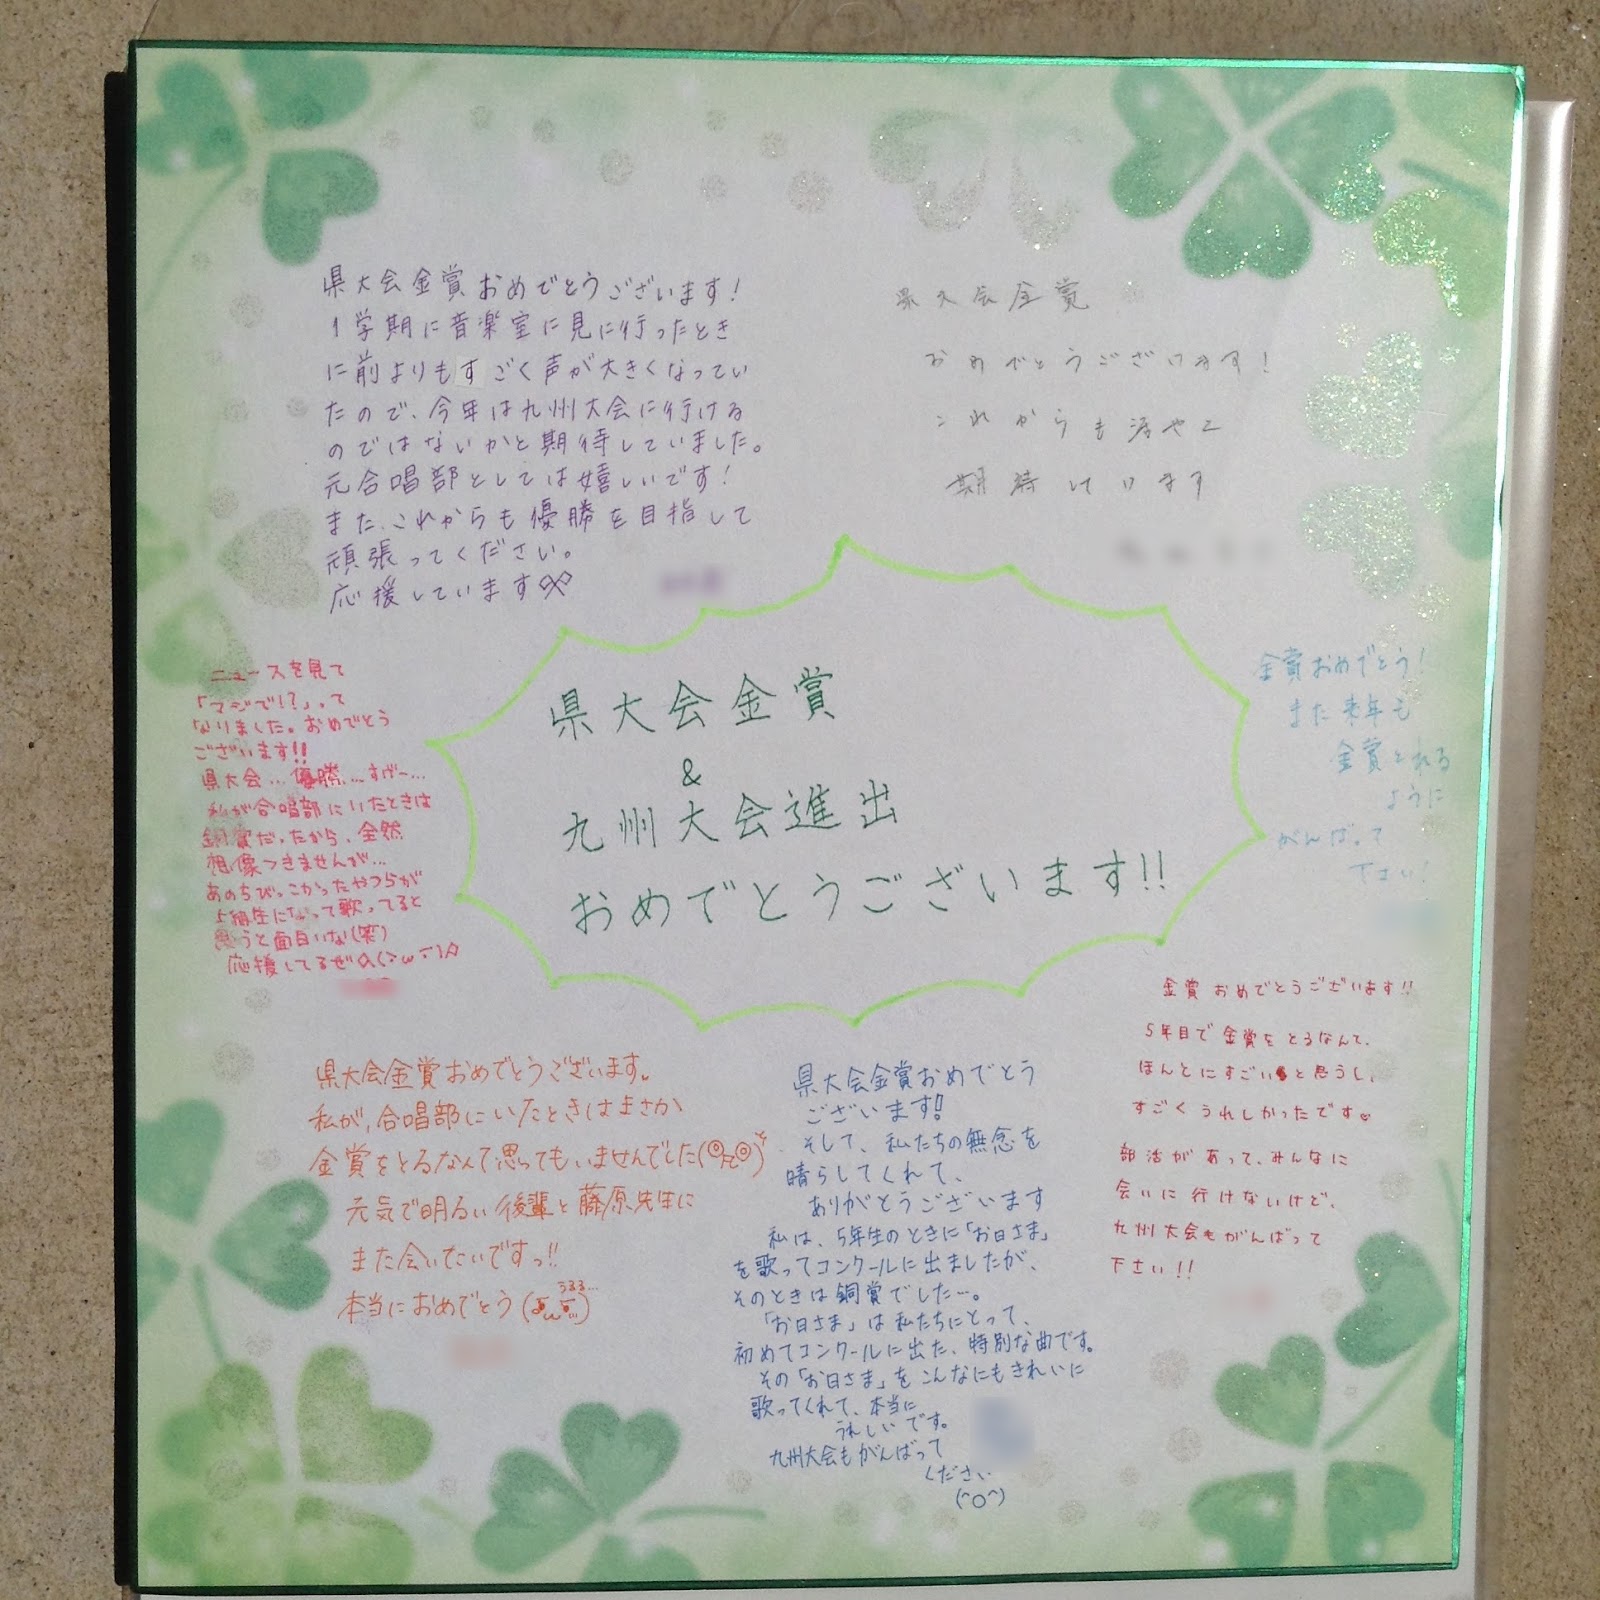 県大会金賞おめでとうございます！
1学期に音楽室に見に行ったとき
に前よりもすごく声が大きくなってい
たので、今年は九州大会に行ける
のではないかと期待していました。
元合唱部としては嬉しいです！
また、これからも優勝を目指して
頑張ってください。
応援しています
県大会金賞
おめでとうございます！
これからも
期待しています
ニュースを見て
「マジで!?」って
なりました。おめでとう
ございます!!
県大会…優勝…すげー…
私が合唱部にいたときは
銅賞だったから、全然
想像つきませんが…
あのちびっこかったやつらが
上級生になって歌ってると
思うと面白いな(笑)
応援してるぜ
県大会金賞
&
九州大会進出
おめでとうございます!!
金賞おめでとう！
また来年も
金賞とれる
ように
がんばって
下さい！
県大会金賞おめでとうございます。
私が、合唱部にいたときはまさか
金賞をとるなんて思ってもいませんでした
元気で明るい後輩と藤原先生に
また会いたいですっ!!
本当におめでとう
うるる…
県大会金賞おめでとう
ございます!
そして、私たちの無念を
晴らしてくれて、
ありがとうございます
私は、5年生のときに「お日さま」
を歌ってコンクールに出ましたが、
そのときは銅賞でした…。
「お日さま」は私たちにとって、
初めてコンクールに出た、特別な曲です。
その「お日さま」をこんなにもきれいに
歌ってくれて、本当に
うれしいです。
九州大会もがんばって
ください
(^○^)
金賞おめでとうございます!!
5年目で金賞をとるなんて、
ほんとにすごいと思うし、
すごくうれしかったです
部活があって、みんなに
会いに行けないけど、
九州大会もがんばって
下さい!!